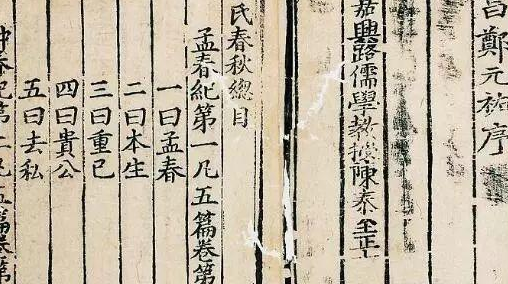 昌鄭元祐序
嘉興路儒學教授陳泰至正
氏春秋總目
孟春紀第一凡五篇卷第
一曰孟春
二曰本生
三曰重已
四曰貴公
五曰去私
仲春紀第二凡五篇卷第